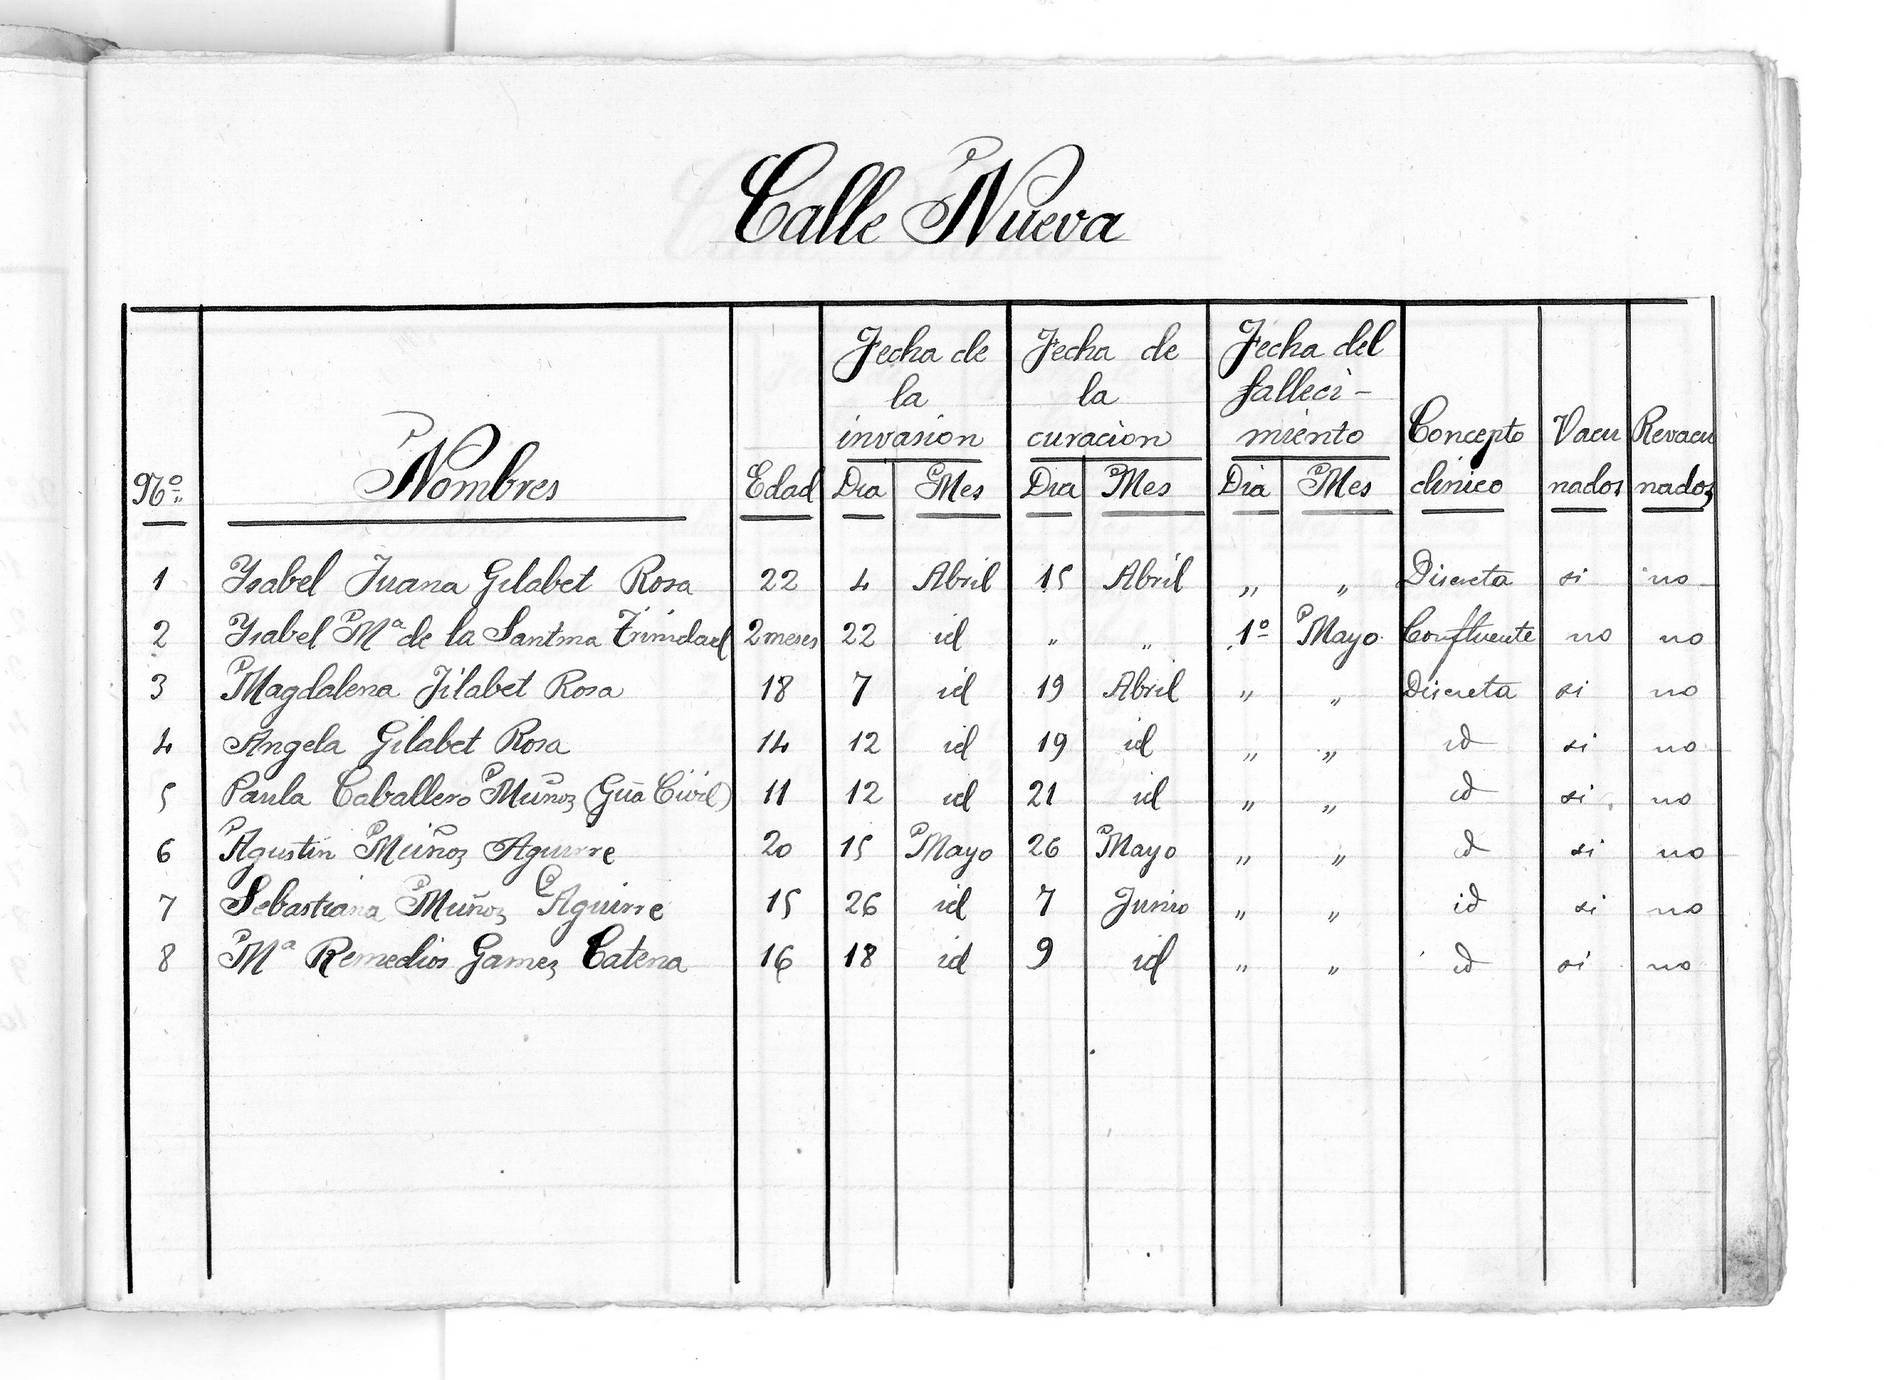 Calle Nueva
Nº Nombres Edad Fecha de la invasion Fecha de la curacion Fecha del falleci-miento Concepto clinico Vacunados Revacunados
Dia Mes Dia Mes Dia Mes
1 Ysabel Juana Gilabet Rosa 22 4 Abril 15 Abril " " Discreta si no
2 Ysabel Mª de la Santma Trinidad 2 meses 22 id " " 1º Mayo Confluente no no
3 Magdalena Jilabet Rosa 18 7 id 19 Abril " " Discreta si no
4 Angela Gilabet Rosa 14 12 id 19 id " " id si no
5 Paula Caballero Muñoz (Gũa Civil) 11 12 id 21 id " " id si no
6 Agustin Muñoz Aguirre 20 15 Mayo 26 Mayo " " id si no
7 Sebastiana Muñoz Aguirre 15 26 id 7 Junio " " id si no
8 Mª Remedios Gamez Catena 16 18 id 9 id " " id si no